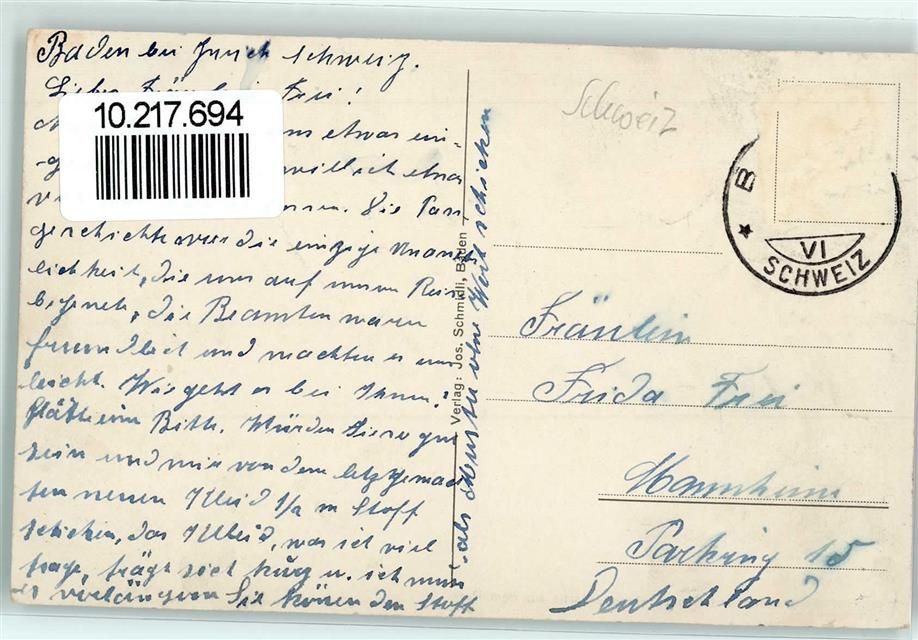 Baden bei Zürich Schweiz.
Liebes Fräulein Frei!
10.217.694
etwas ein-
will ich etwas
Die Pass
geschichte war die einzige Unann
lichkeit, die uns auf unserer Reise
begegnete, die Beamten waren
freundlich und machten es uns
leicht. Wie geht es bei Ihnen?
Bitte. Würden Sie so gut
sein und mir von dem letztgemach
ten neuen Kleid 1/2 m Stoff
schicken, das Kleid, was ich viel
trage, trägt sich kurz u. ich muss
es verlängern Sie können den Stoff
als Muster ohne Wert schicken
Verlag: Jos. Schmidli, Baden
Schweiz
B
VI
SCHWEIZ
Fräulein
Frida Frei
Mannheim
Parkring 15
Deutschland